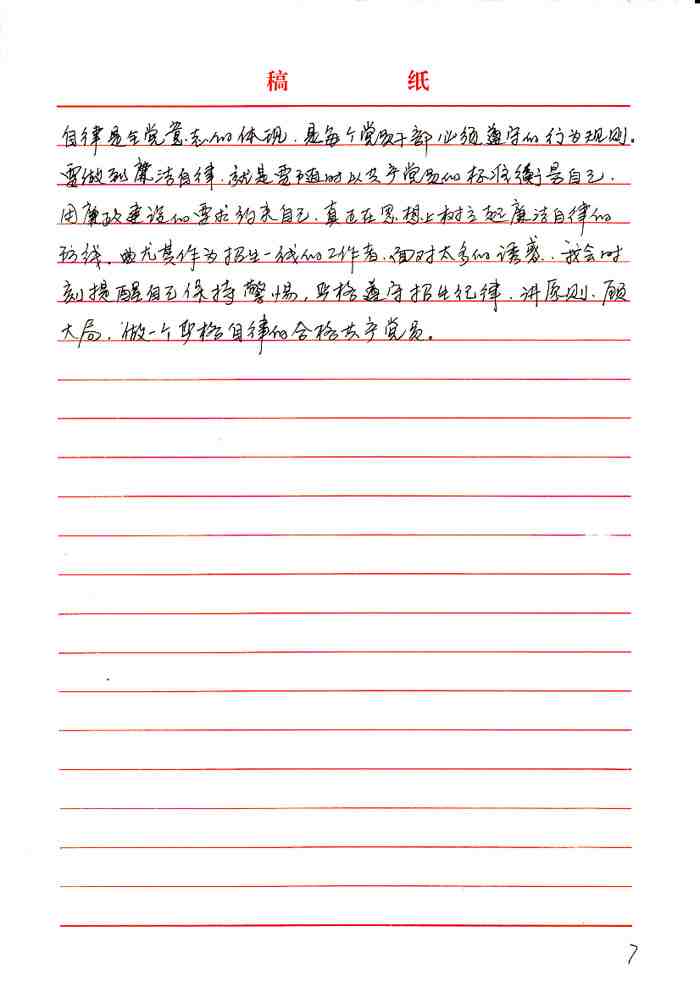 稿 纸
自律是全党意志的体现，是每个党员干部必须遵守的行为规则。
要做到廉洁自律，就是要随时以共产党员的标准衡量自己，
用廉政建设的要求约束自己，真正在思想上树立起廉洁自律的
防线。尤其作为招生一线的工作者，面对太多的诱惑，我会时
刻提醒自己保持警惕，严格遵守招生纪律，讲原则、顾
大局，做一个严格自律的合格共产党员。
7